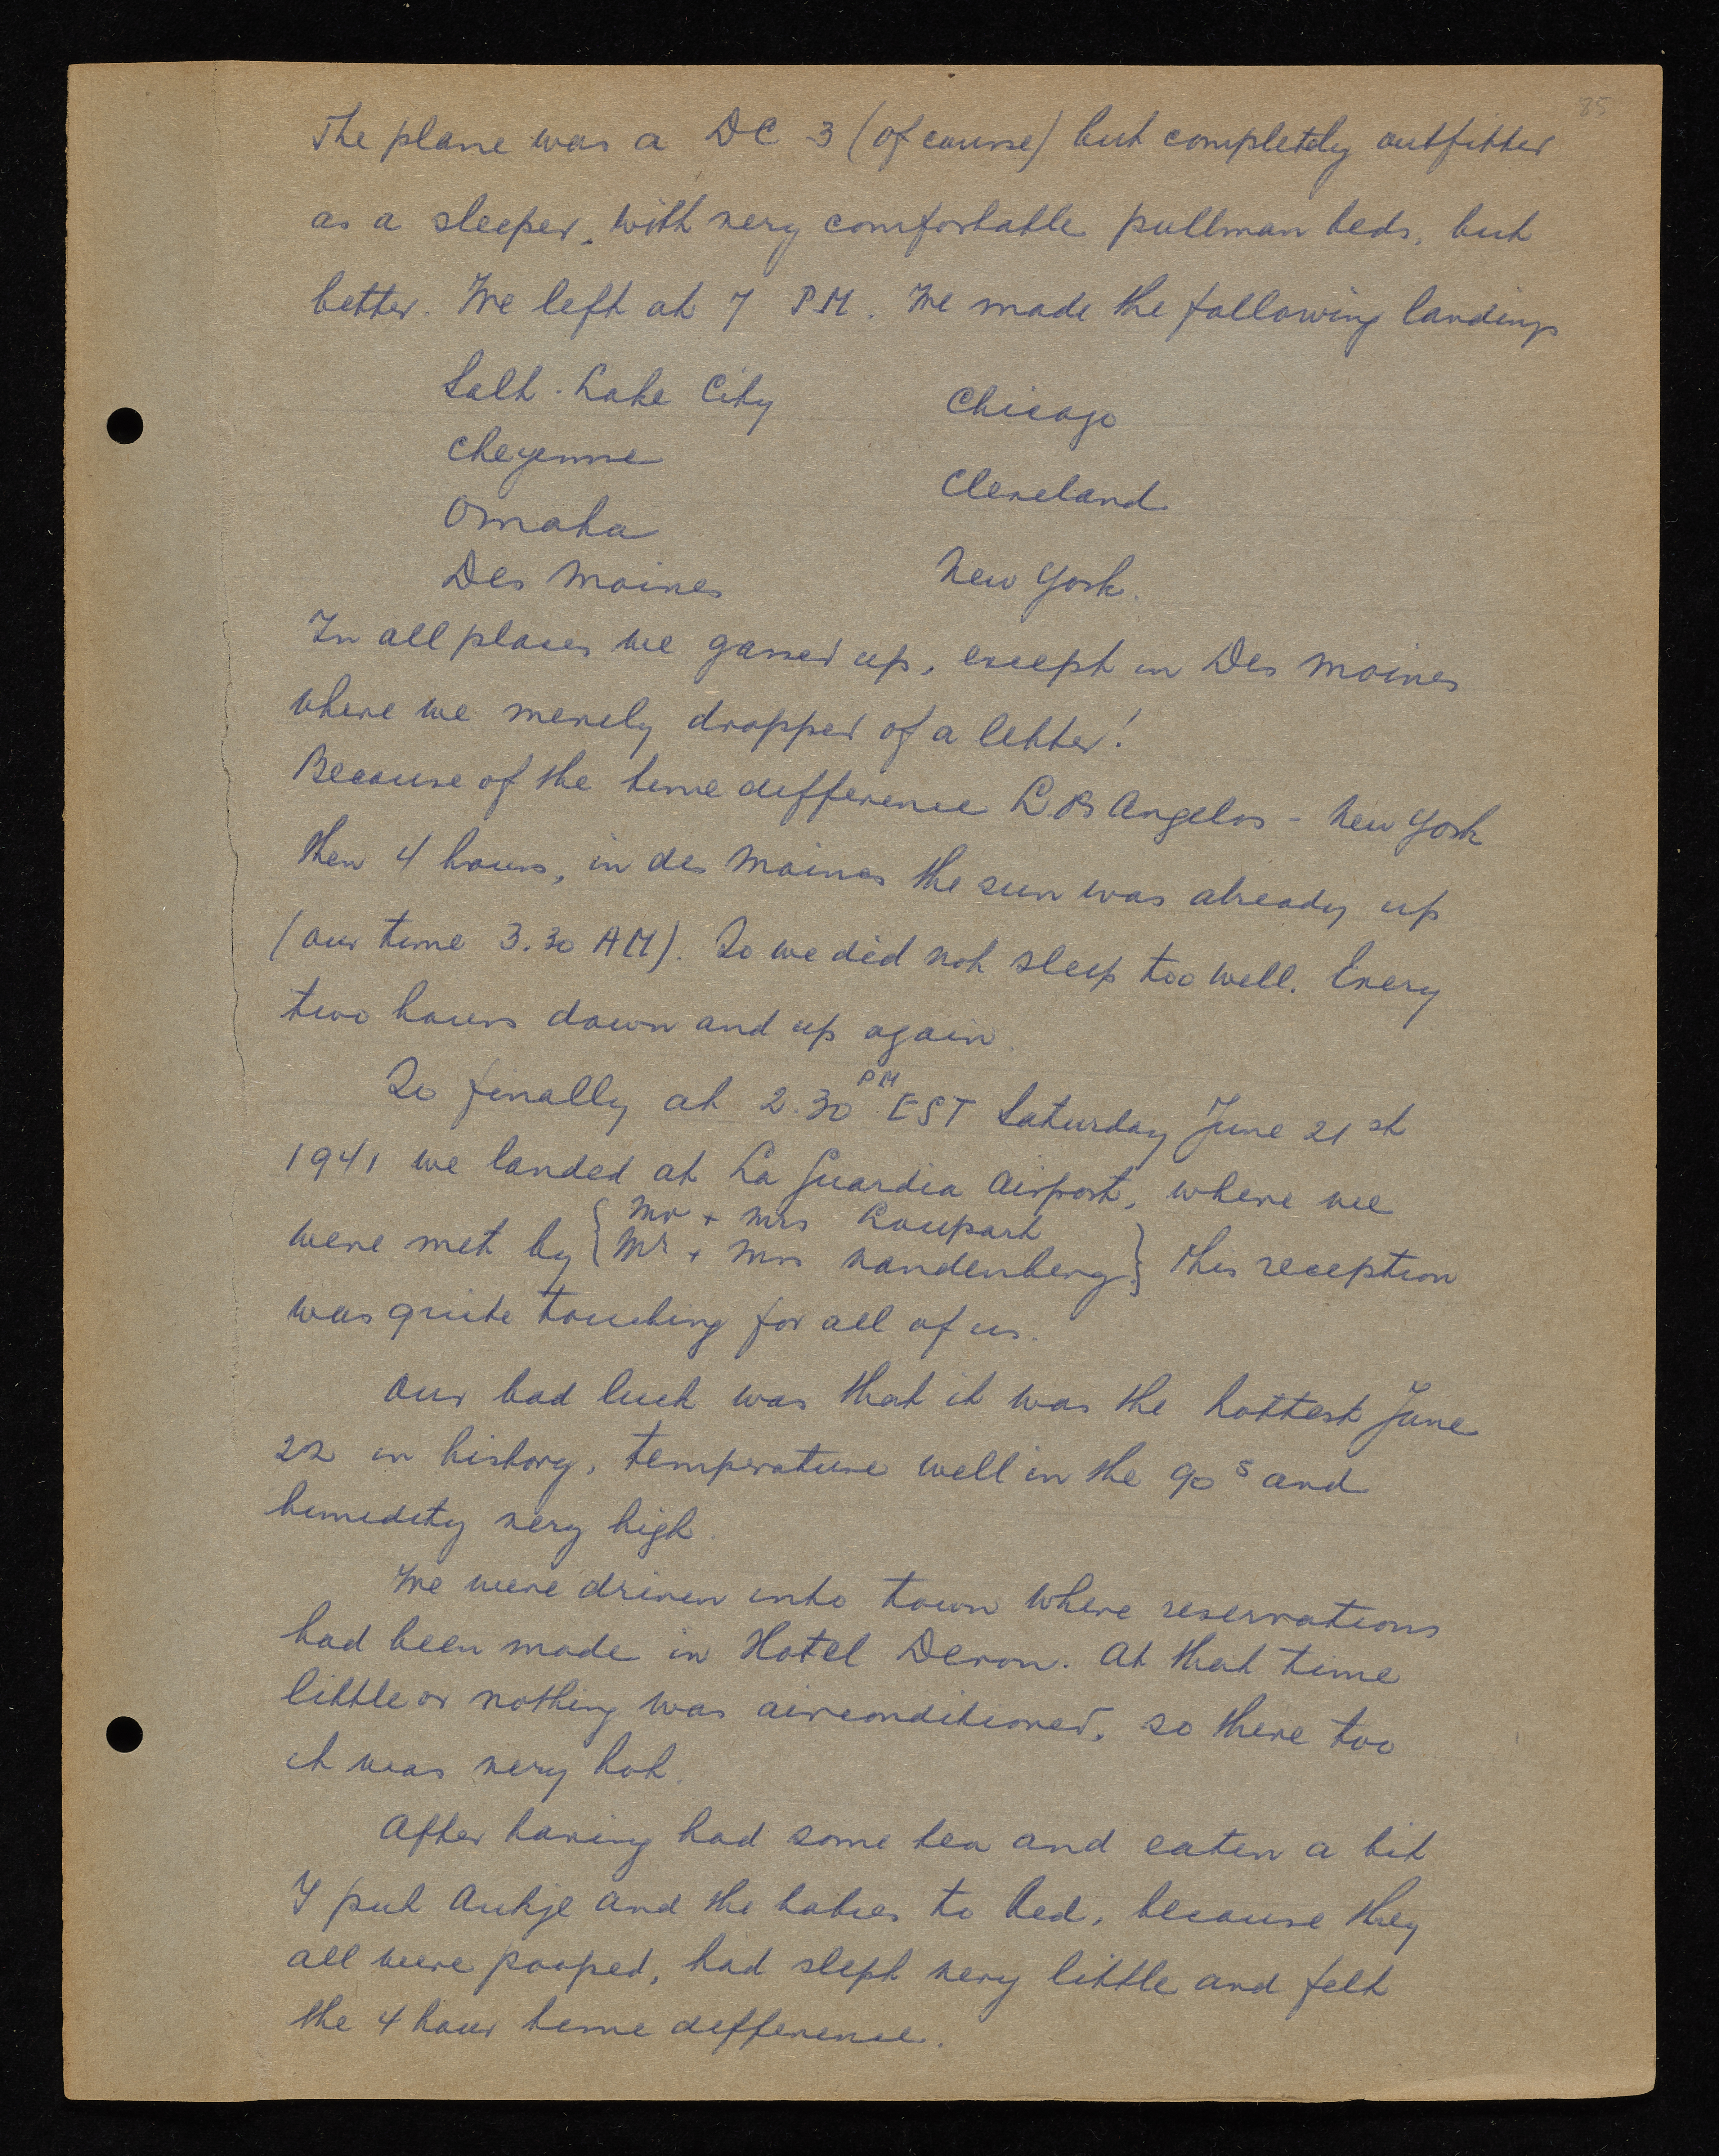 85
The plane was a DC 3 (of course) but completely outfitted
as a sleeper. with very comfortable pullman beds, but
better. We left at 7 PM. We made the following landings
Salt-Lake City
Cheyenne
Omaha
Des Moines
Chicago
Cleveland
New York.
In all places we gassed up, except in Des Moines
where we merely dropped of a letter!
Because of the time difference Los Angelos - New York
then 4 hours, in des Moines the sun was already up
(our time 3.30 AM). So we did not sleep too well. Every
two hours down and up again.
So finally at 2.30 PM EST Saturday June 21st
1941 we landed at La Guardia Airport, where we
were met by { Mr + Mrs Loupart
Mr + Mrs Vandenberg } this reception
was quite touching for all of us.
Our bad luck was that it was the hottest June
22 in history, temperature well in the 90s and
humidity very high.
We were driven into town where reservations
had been made in Hotel Devon. At that time
little or nothing was airconditioned, so there too
it was very hot.
After having had some tea and eaten a bit
I put Aukje and the babies to bed, because they
all were pooped, had slept very little and felt
the 4 hour time difference.